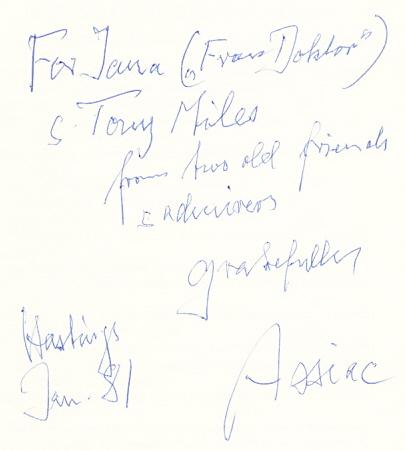 For Jana („Frau Doktor")
& Tony Miles
from two old friends
& admirers
gratefully
Hastings
Jan. 81
Assiac